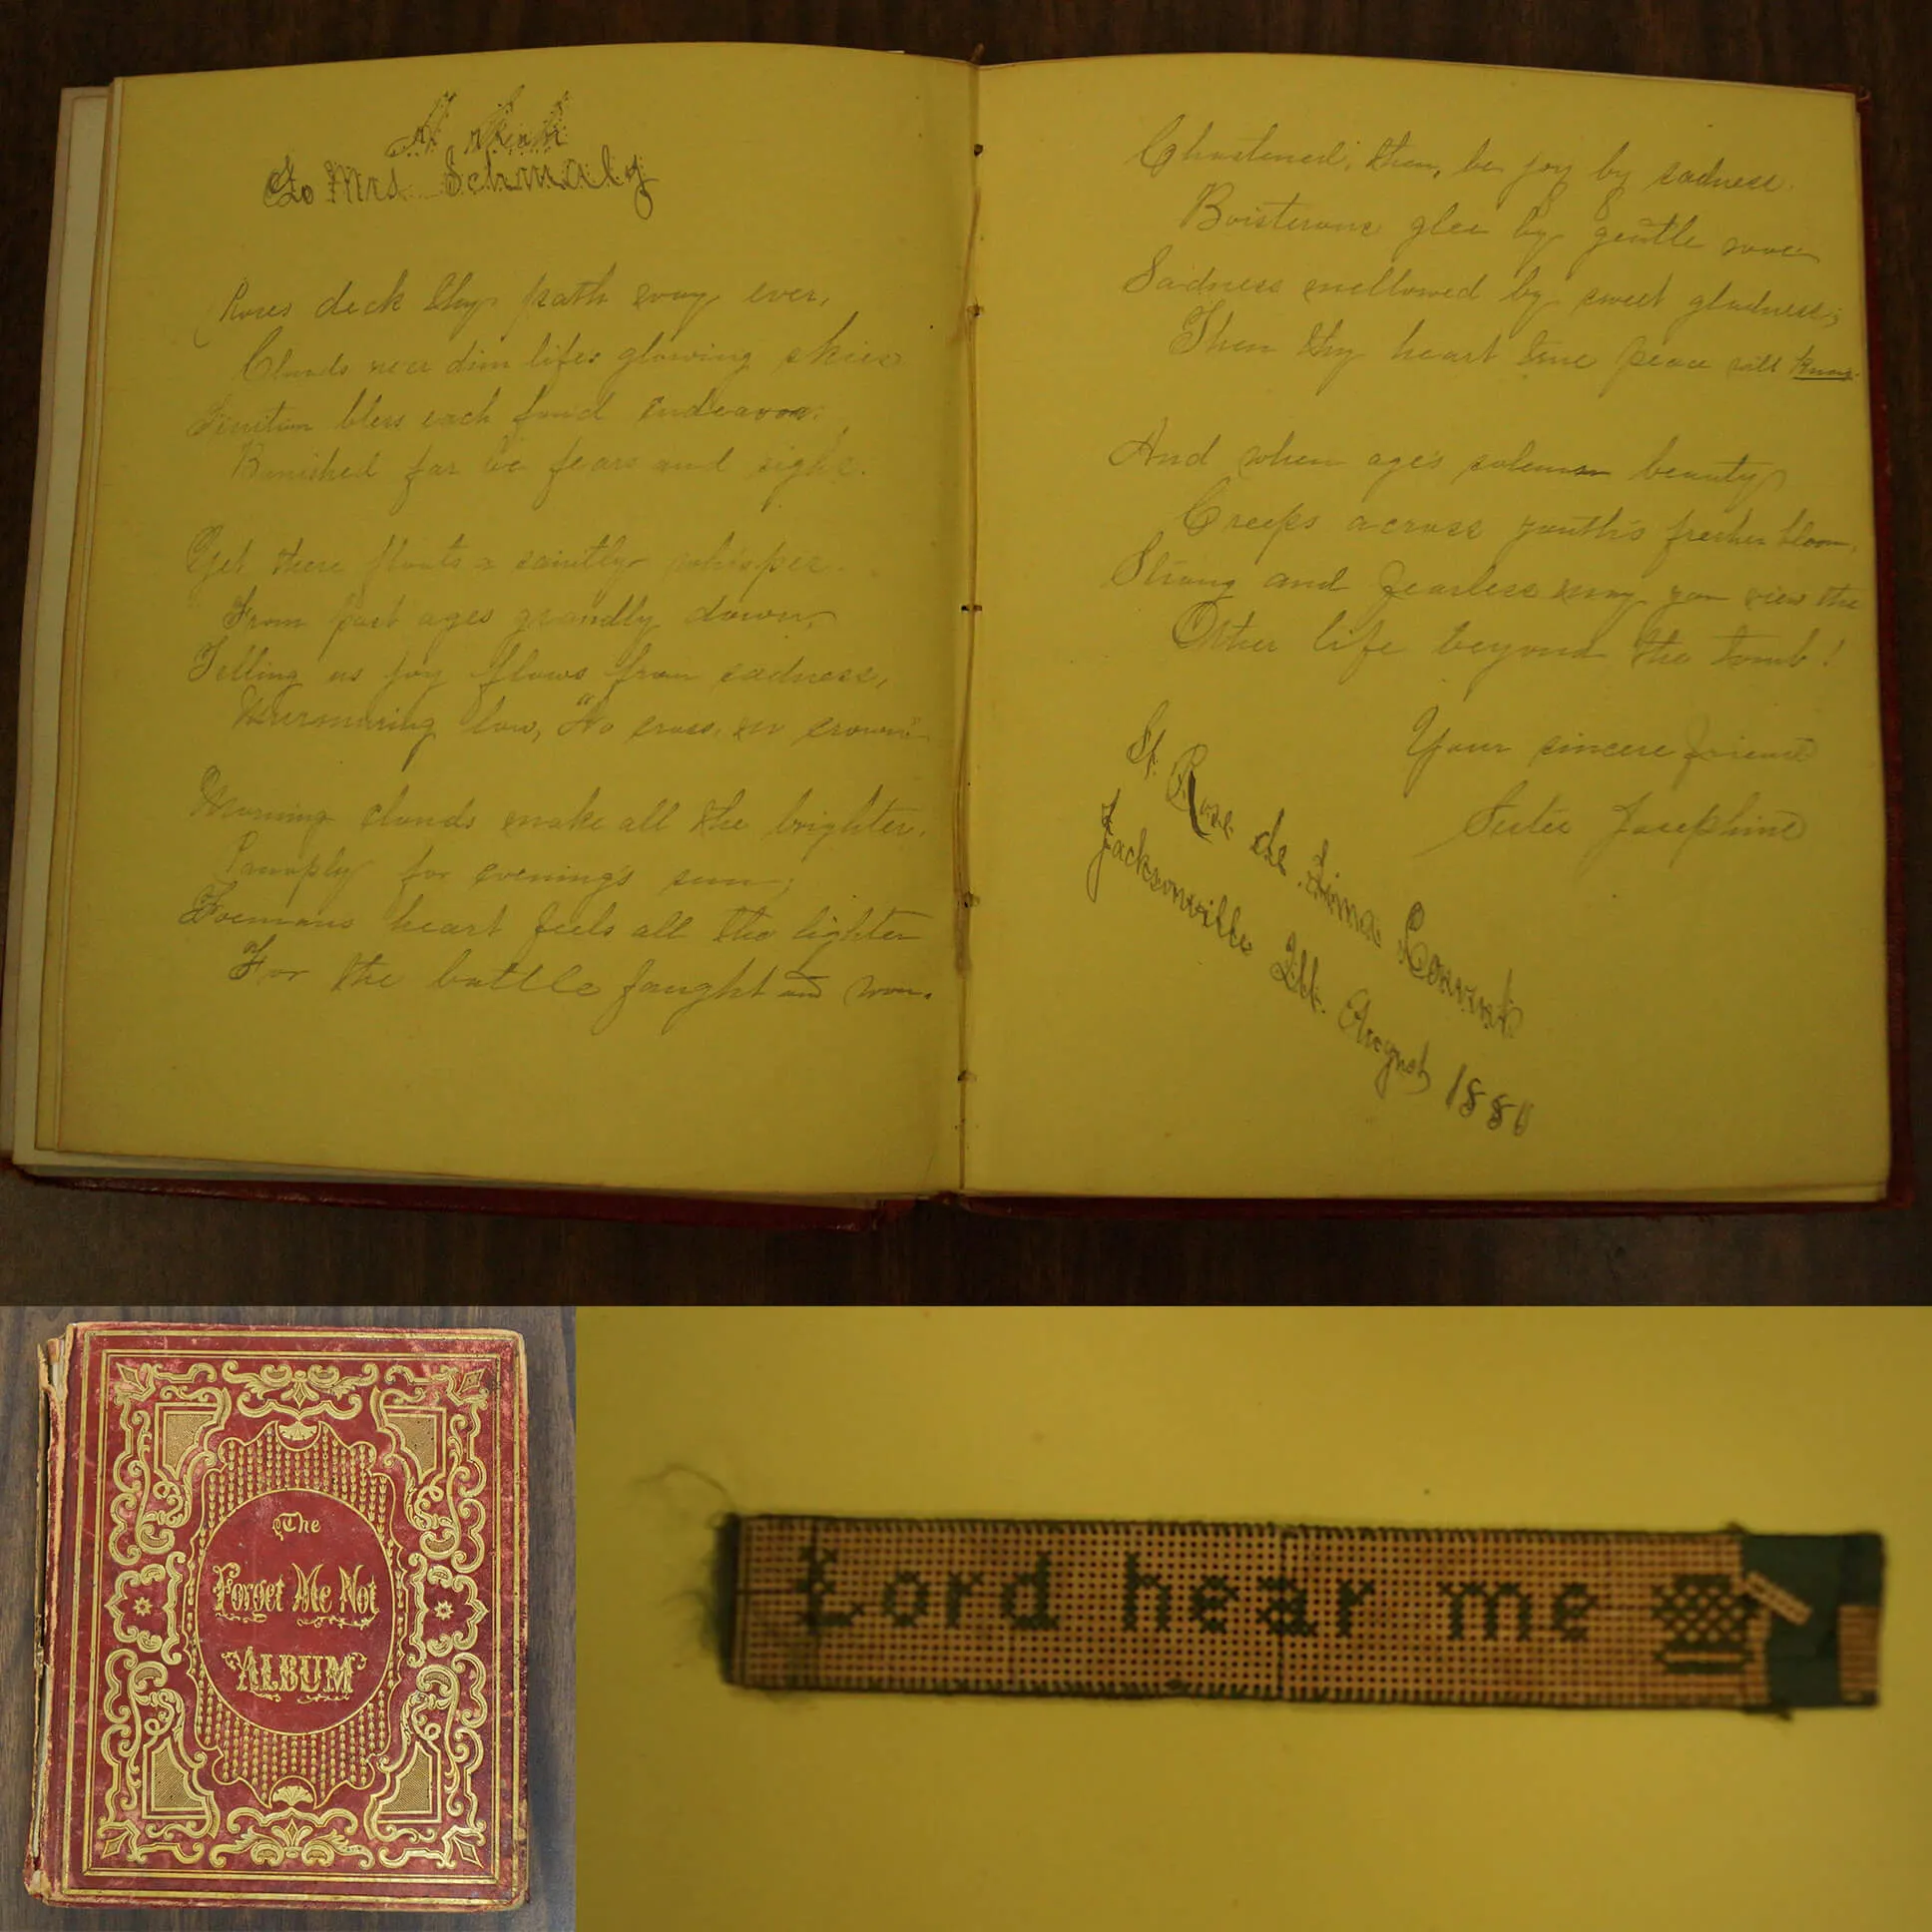 A Wish
To Mrs. Schmaly
Roses deck thy path way ever,
Clouds neer dim lifes glowing skies
bless each fond endeavor.
Banished far be fears and sighs.
Yet there floats a saintly whisper.
From past ages grandly down,
Telling us joy flows from sadness,
Murmuring low, "No cross, no crown"
Morning clouds make all the brighter,
for evening's sun;
heart feels all the lighter
For the battle fought and won.
Chastened, then, be joy by sadness.
Boisterous glee by gentle woe
Sadness mellowed by sweet gladness;
Then thy heart true peace will know.
And when age's solemn beauty
Creeps across youth's fresher bloom,
Strong and fearless may you view the
Other life beyond the tomb!
Your sincere friend
Sister Josephine
St. Rose de Lima Convent
Jacksonville Ill. August 1880
The
Forget Me Not
ALBUM
Lord hear me